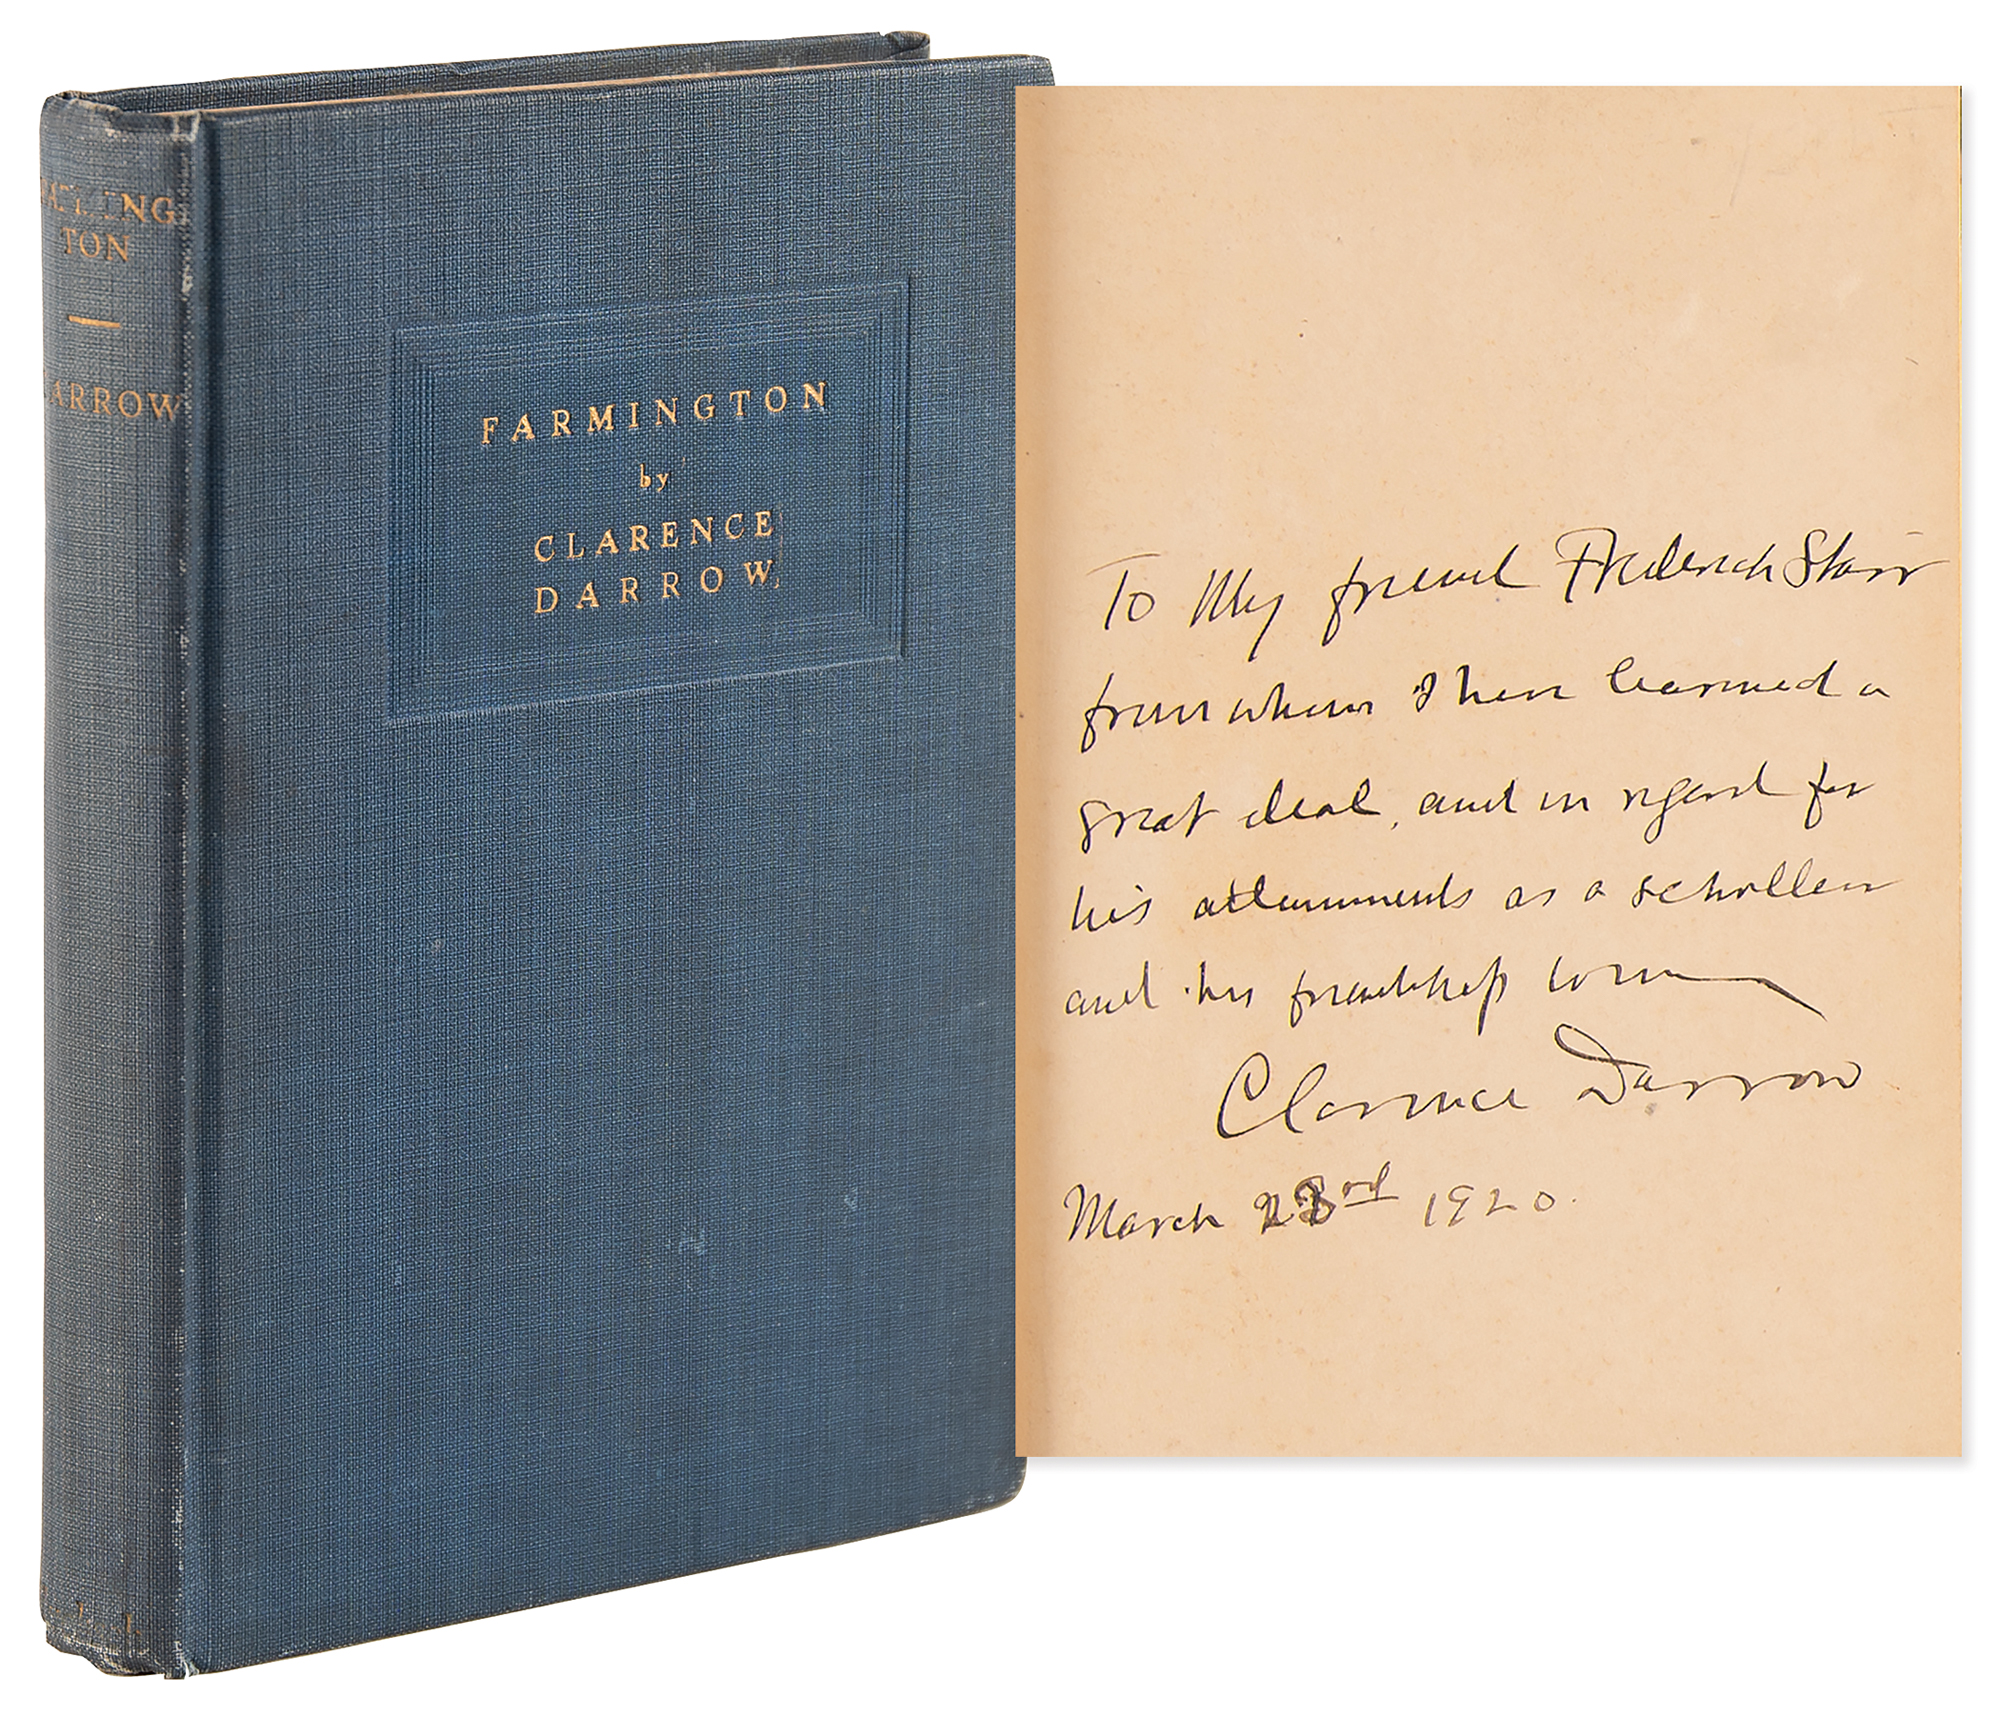 TON
ARROW
FARMINGTON
by
CLARENCE
DARROW
To My friend Frederick Starr
from whom I have learned a
great deal, and in regard for
his attainments as a schollar
and his friendship
Clarence Darrow
March 23rd 1920.